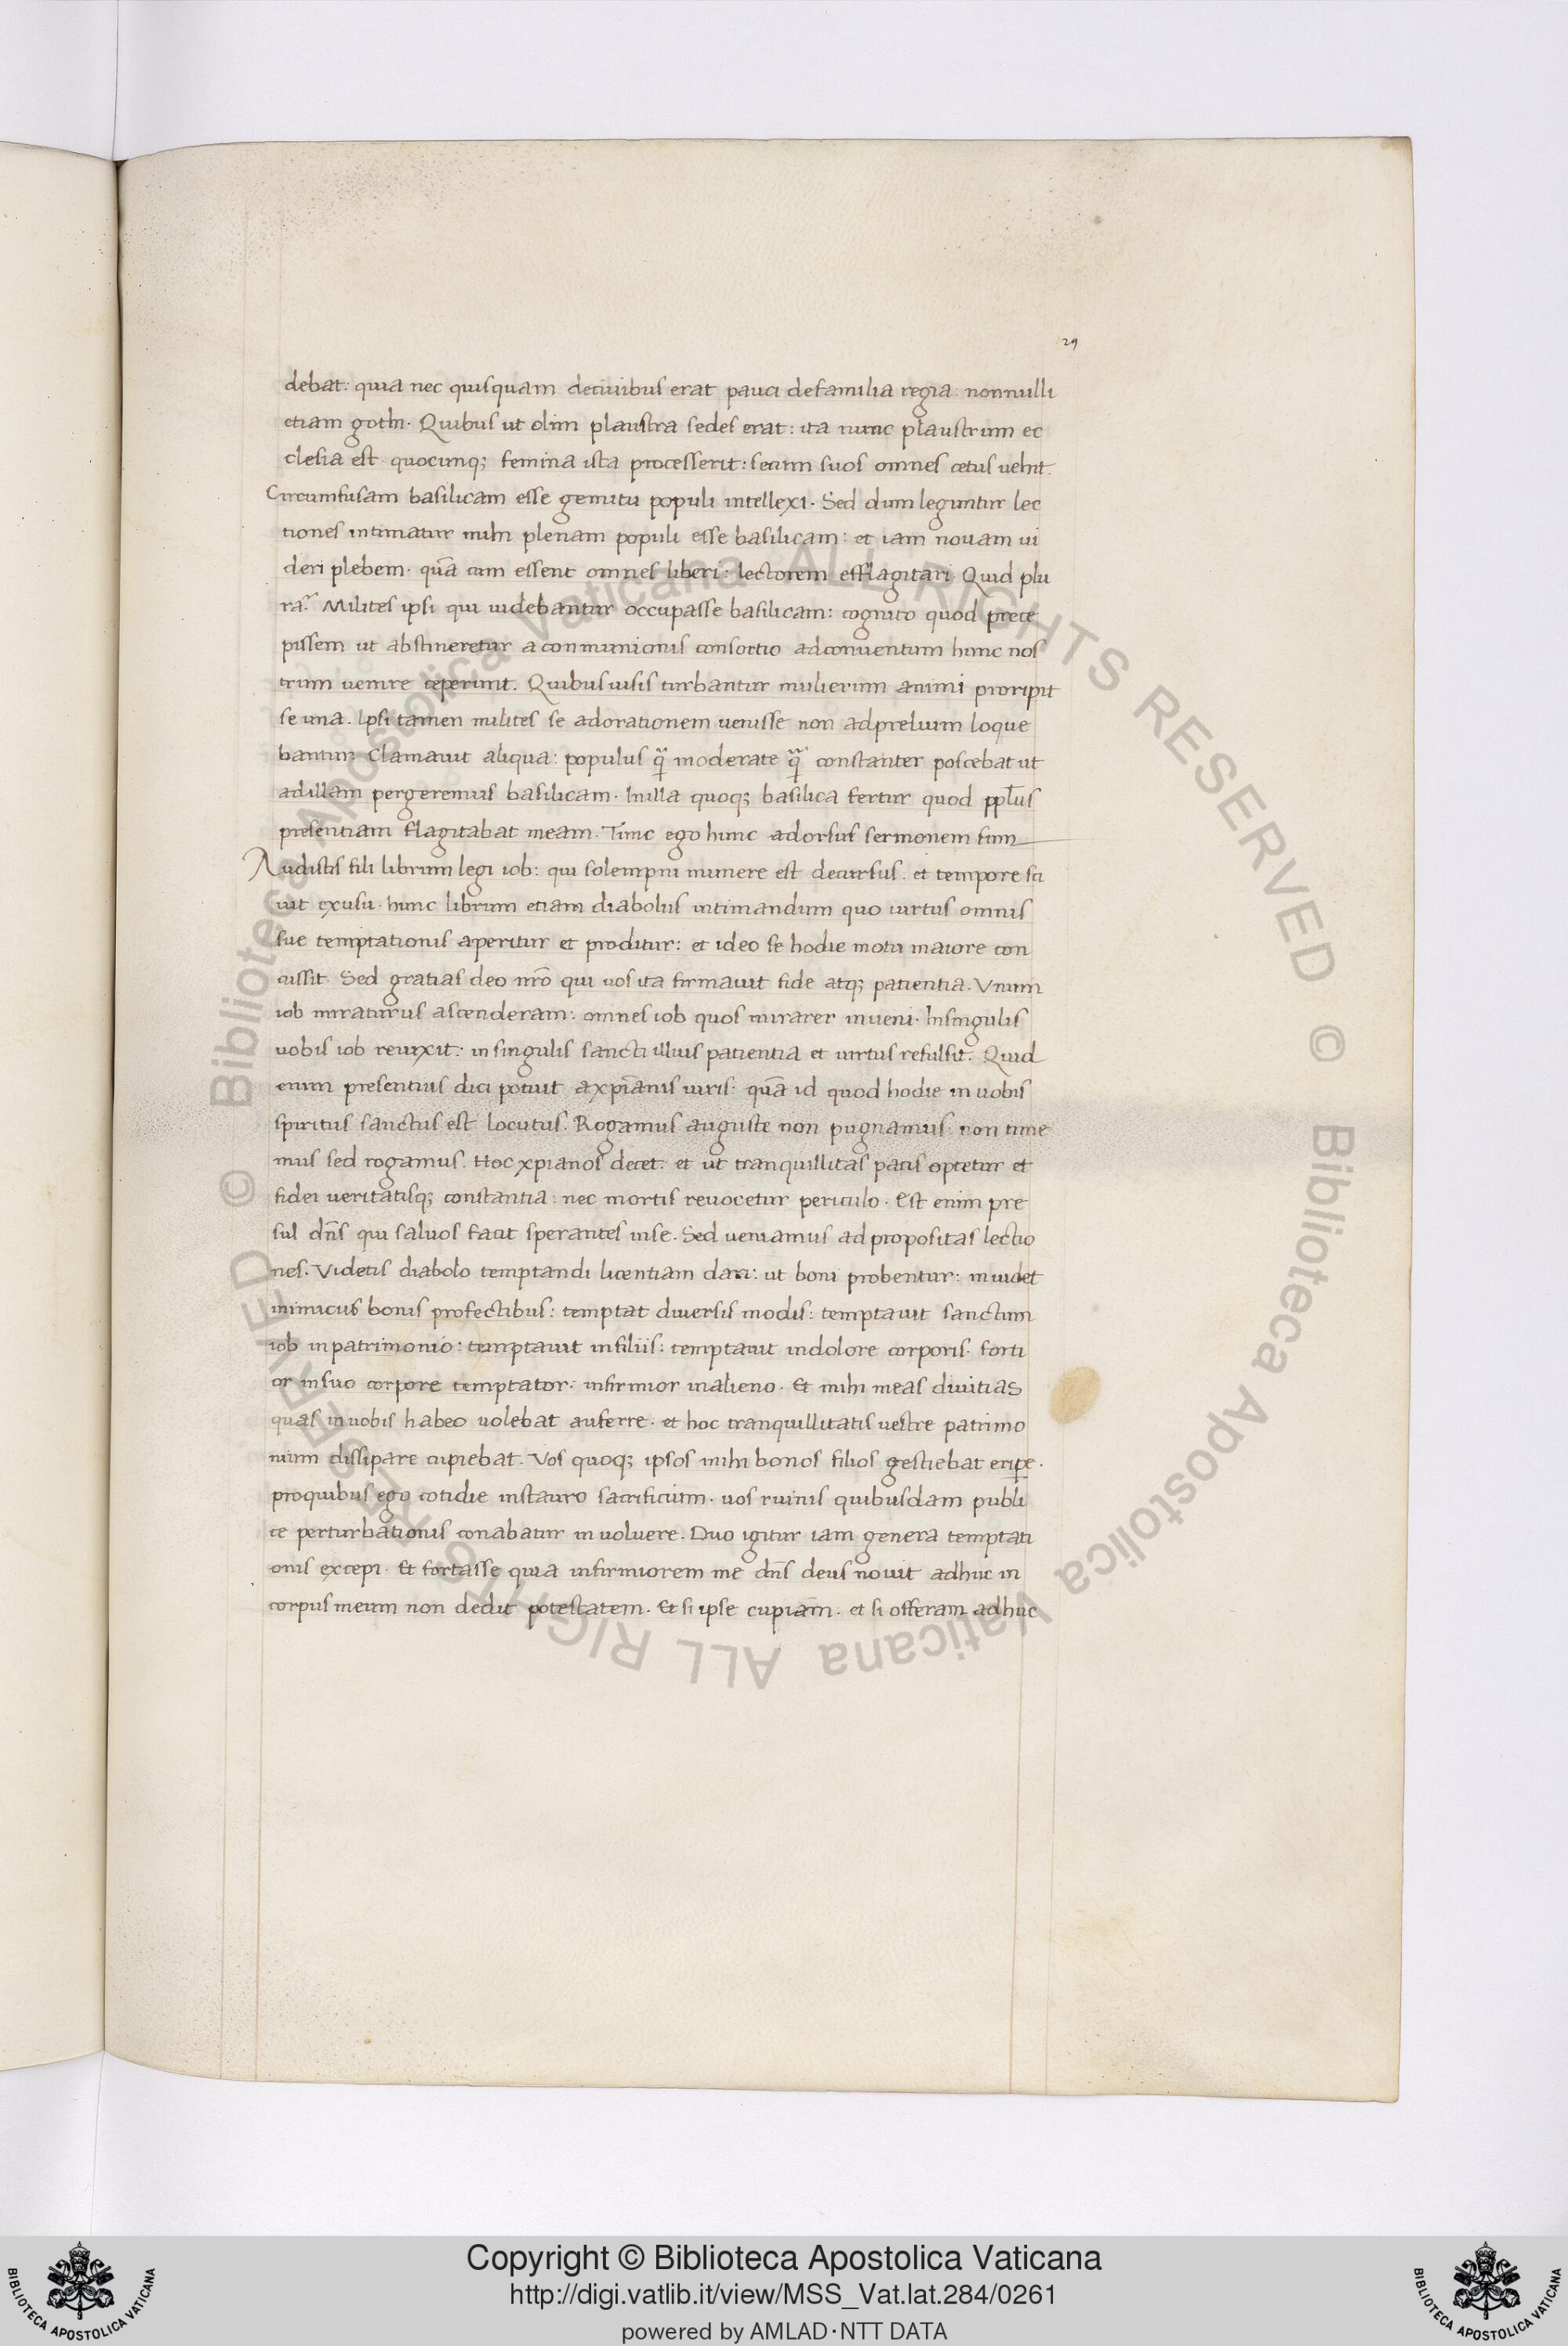 29
debat: quia nec quisquam deciuibus erat pauci defamilia regia. nonnulli
etiam gothi. Quibus ut olim plaustra sedes erat: ita nunc plaustrum ec
clesia est. quocunq; femina ista processerit: secum suos omnes cetus uehit.
Circumfusam basilicam esse gemitu populi intellexi. Sed dum leguntur lec
tiones intimatur mihi plenam populi esse basilicam: et iam nouam ui
deri plebem. quā cum essent omnes liberi: lectorem efflagitari Quid plu
ra? Milites ipsi qui uidebantur occupasse basilicam: cognito quod prece
pissem ut abstineretur a communionis consortio adconuentum hunc nos
trum uenire ceperunt. Quibus uisis turbantur mulierum animi proripit
se una. Ipsi tamen milites se adorationem uenisse non adprelium loque
bantur. Clamauit aliqua: populus moderate constanter poscebat ut
adillam pergeremus basilicam. Inilla quoq; basilica fertur quod pp̄lus
presentiam flagitabat meam. Tunc ego hunc adorsus sermonem sum
Audistis fili librum legi iob: qui solempni munere est decursus. et tempore sci
uit exusu. hunc librum etiam diabolus intimandum quo uirtus omnis
sue temptationis aperitur et proditur: et ideo se hodie motu maiore con
cussit. Sed gratias deo nr̄o qui uos ita firmauit fide atq; patientia. Vnum
iob miraturus ascenderam: omnes iob quos mirarer inueni. Insingulis
uobis iob reuixit: in singulis sancti illius patientia et uirtus refulsit. Quid
enim presentius dici potuit axp̄ianis uiris. quā id quod hodie in uobis
spiritus sanctus est locutus. Rogamus auguste non pugnamus: non time
mus sed rogamus. Hoc xpianos decet: et ut tranquillitas pacis optetur et
fidei ueritatisq; constantia: nec mortis reuocetur periculo. Est enim pre
sul dn̄s qui saluos facit sperantes inse. Sed ueniamus ad propositas lectio
nes. Videtis diabolo temptandi licentiam dari: ut boni probentur: inuidet
inimicus bonis profectibus: temptat diuersis modis: temptauit sanctum
iob inpatrimonio: temptauit infiliis: temptauit indolore corporis. forti
or insuo corpore temptator. infirmior inalieno. Et mihi meas diuitias
quas inuobis habeo uolebat auferre. et hoc tranquillitatis uestre patrimo
nium dissipare cupiebat. Vos quoq; ipsos mihi bonos filios gestiebat erip̱e.
proquibus ego cotidie instauro sacrificium. uos ruinis quibusdam publi
ce perturbationis conabatur inuoluere. Duo igitur iam genera temptati
onis excepi. Et fortasse quia infirmiorem me dn̄s deus nouit adhuc in
corpus meum non dedit potestatem. Et si ipse cupiam. et si offeram adhuc
© Biblioteca Apostolica Vaticana ALL RIGHTS RESERVED
© Biblioteca Apostolica Vaticana ALL RIGHTS RESERVED
Copyright © Biblioteca Apostolica Vaticana
http://digi.vatlib.it/view/MSS_Vat.lat.284/0261
powered by AMLAD·NTT DATA
BIBLIOTECA APOSTOLICA VATICANA
BIBLIOTECA APOSTOLICA VATICANA